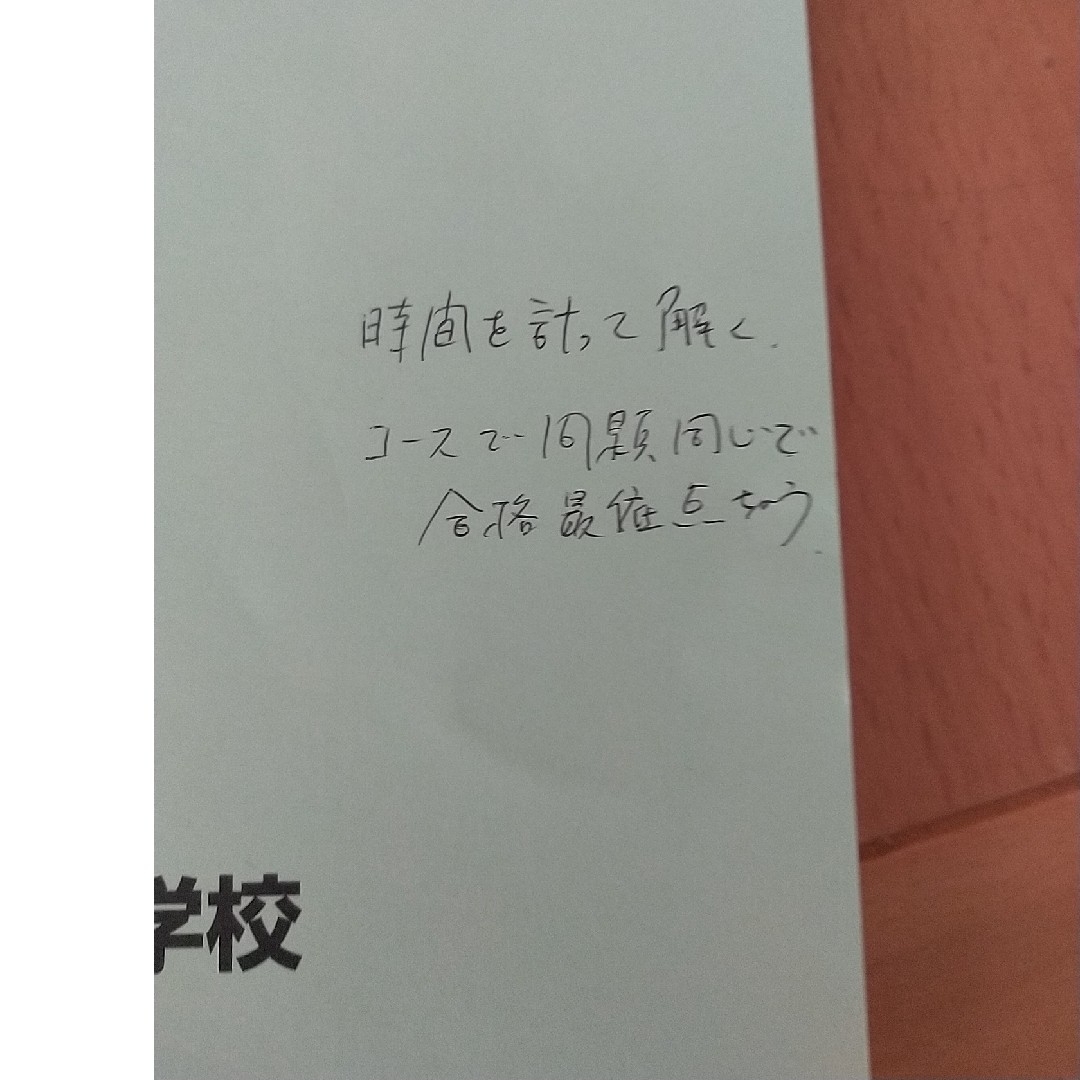 時間を計って解く.
コースで問題同じで
合格最低点ちがう.
学校